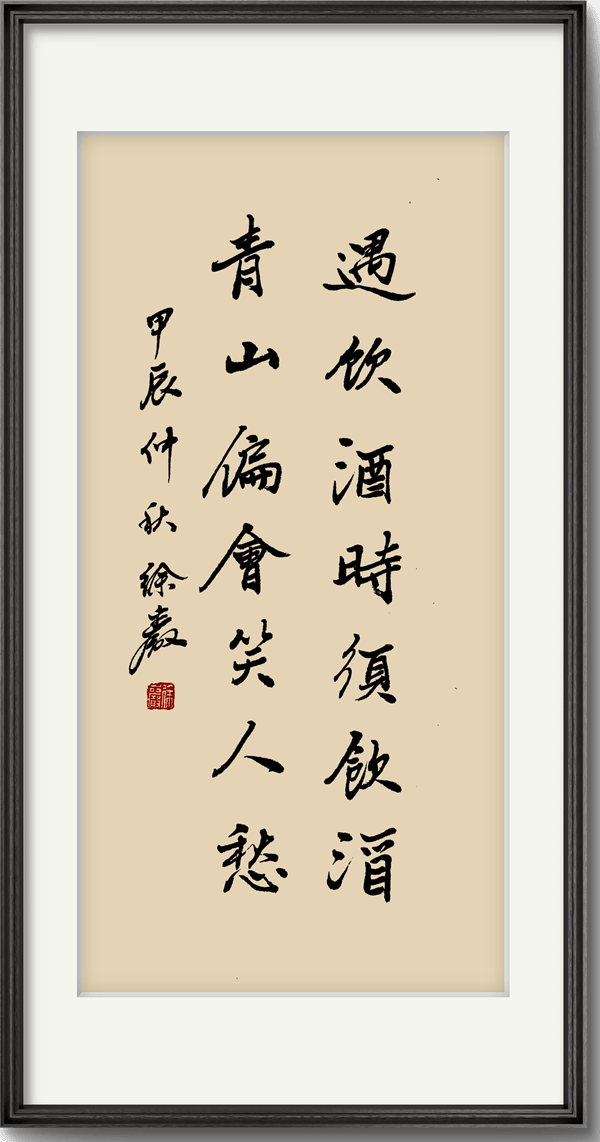 遇飲酒時須飲酒
青山偏會笑人愁
甲辰仲秋徐嚴
徐嚴